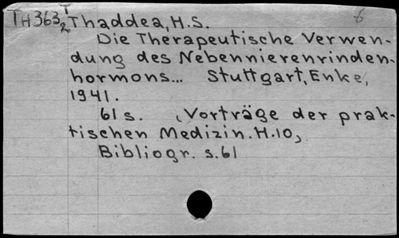 T
TH363₂ Thaddea, H.S. 6
Die Therapeutische Verwen-
dung des Nebennierenrinden-
hormons... Stuttgart, Enke,
1941.
61 s. (Vorträge der prak-
tischen Medizin. H.10,
Bibliogr. s.61